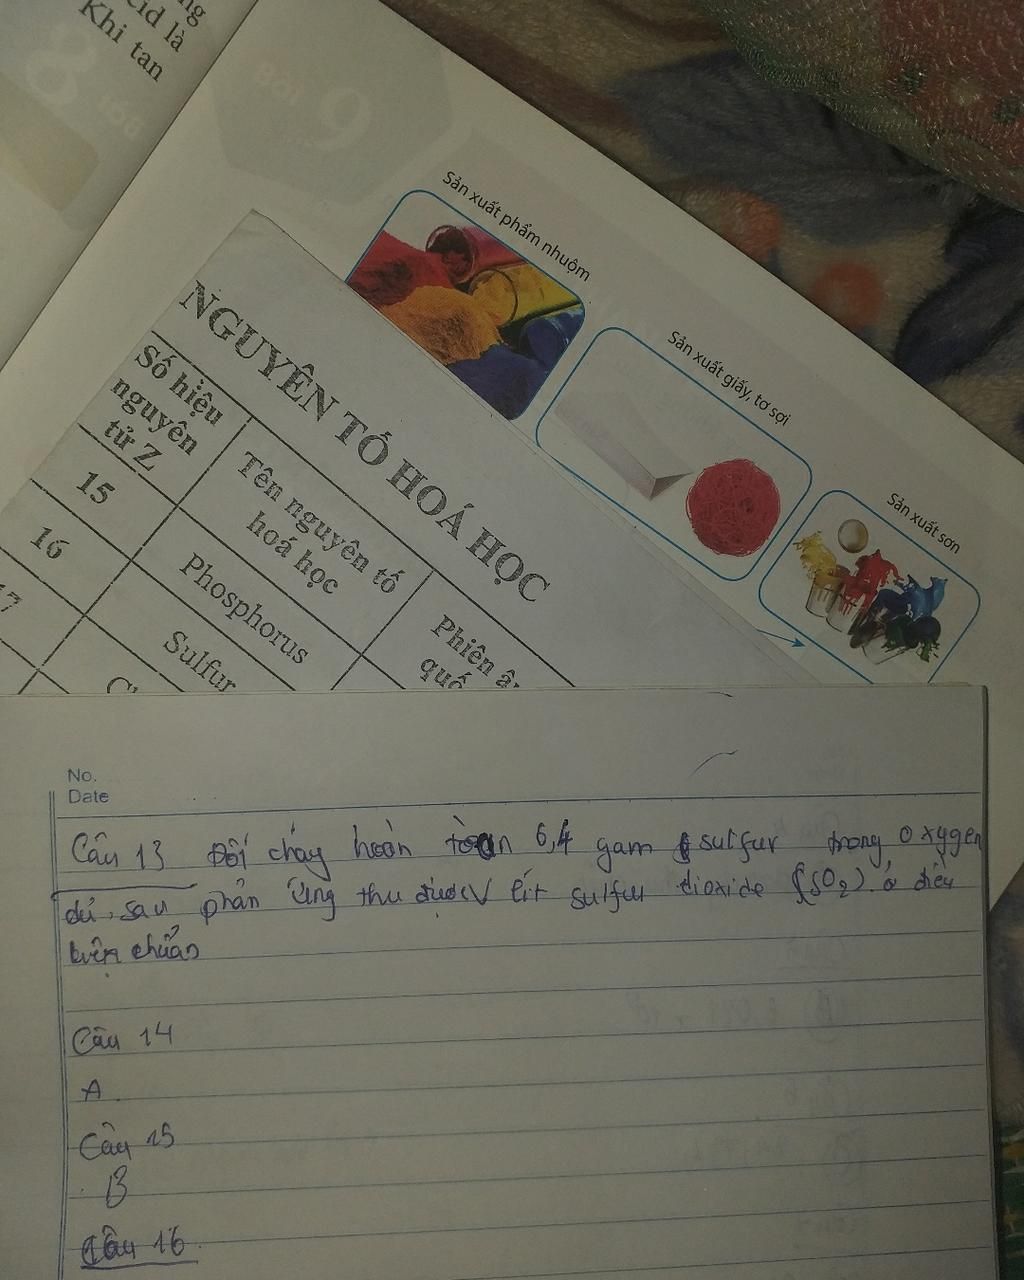 ng
cid là
Khi tan
8
Bài
9
Bài
Sản xuất phẩm nhuộm
Sản xuất giấy, tơ sợi
Sản xuất sơn
NGUYÊN TỐ HOÁ HỌC
Số hiệu
nguyên
tử Z
Tên nguyên tố
hoá học
Phiên â
quố
15
Phosphorus
16
Sulfur
17
No.
Date
Câu 13 Đốt cháy hoàn toàn 6,4 gam sulfur trong oxygen
dư, sau phản ứng thu được V lít sulfur dioxide (SO2). ở điều
kiện chuẩn
Câu 14
A.
Câu 15
B
Câu 16